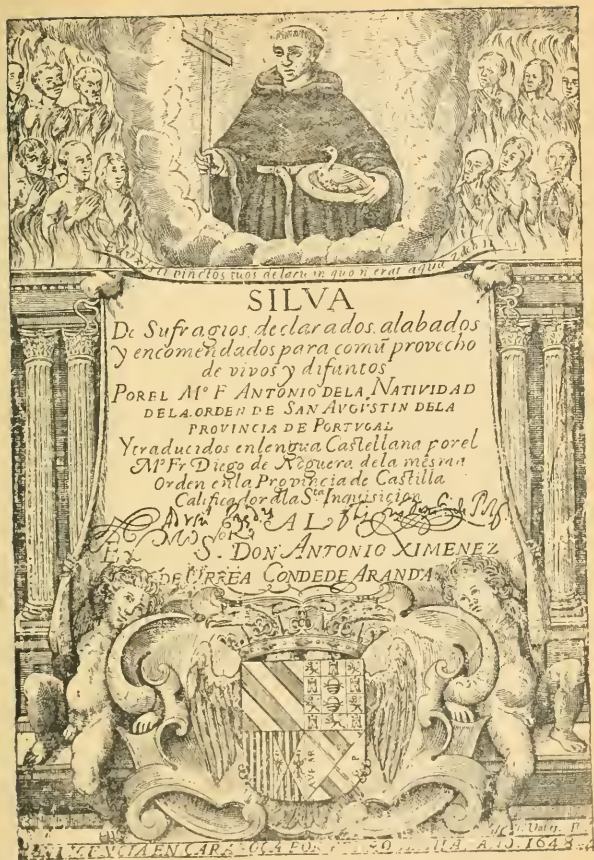 vinctos tuos de lacu in quo n̄ erat aqua
SILVA
De Sufragios, declarados, alabados
y encomendados para comũ provecho
de vivos y difuntos
POR EL Mº F ANTONIO DE LA NATIVIDAD
DE LA ORDEN DE SAN AVGVSTIN DE LA
PROVINCIA DE PORTVGAL
Y traducidos en lengua Castellana por el
Mº Fr Diego de Noguera de la mesma
Orden en la Provincia de Castilla
Calificador d la Sta Inquisicion
AL
Ex MO S.OR DON ANTONIO XIMENEZ
DE URREA CONDE DE ARANDA
EN CARAGOÇA POR AÑO 1648